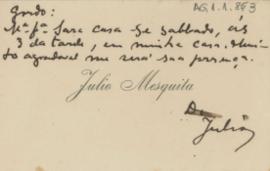 AG.1.1.853
Gordo:
Mª fª Sara casa-se sabbado, ás
3 da tarde, em minha casa. Mui-
to agradavel me será sua presença.
Julio Mesquita
Do
Julio